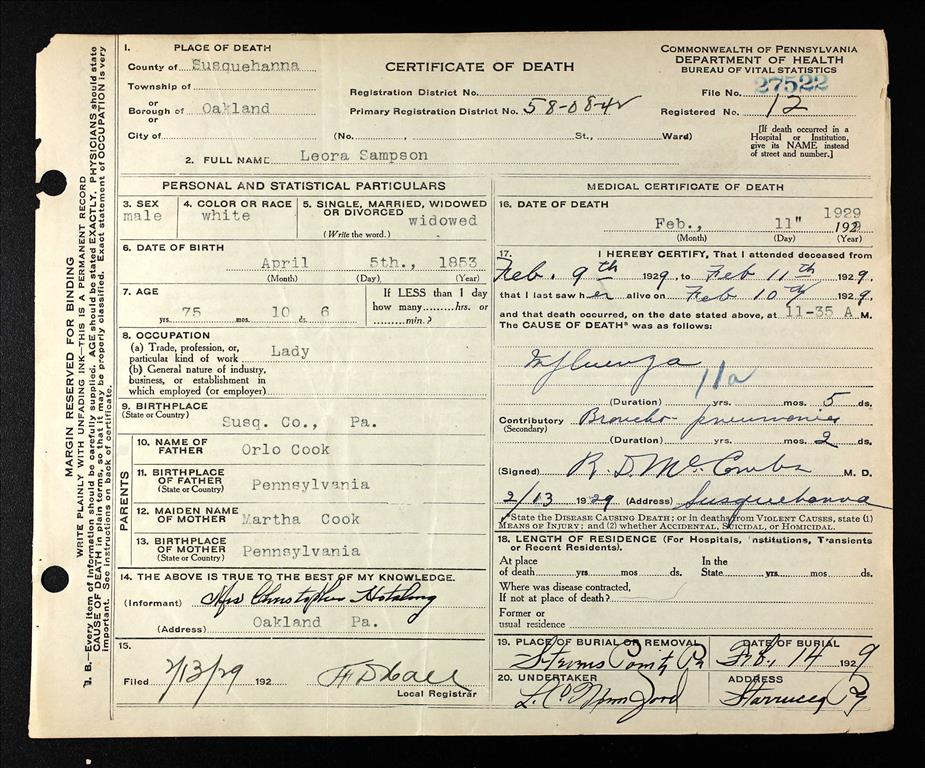 1. PLACE OF DEATH
County of Susquehanna
Township of
or
Borough of Oakland
or
City of
CERTIFICATE OF DEATH
Registration District No.
Primary Registration District No. 58-08-42
(No. , St., Ward)
COMMONWEALTH OF PENNSYLVANIA
DEPARTMENT OF HEALTH
BUREAU OF VITAL STATISTICS
File No. 27522
Registered No. 12
[If death occurred in a
Hospital or Institution,
give its NAME instead
of street and number.]
2. FULL NAME Leora Sampson
PERSONAL AND STATISTICAL PARTICULARS
3. SEX
male
4. COLOR OR RACE
white
5. SINGLE, MARRIED, WIDOWED
OR DIVORCED
widowed
(Write the word.)
6. DATE OF BIRTH
April 5th., 1853
(Month) (Day) (Year)
7. AGE
75 yrs. 10 mos. 6 ds.
If LESS than 1 day
how many hrs. or
min.?
8. OCCUPATION
(a) Trade, profession, or,
particular kind of work Lady
(b) General nature of industry,
business, or establishment in
which employed (or employer)
9. BIRTHPLACE
(State or Country)
Susq. Co., Pa.
PARENTS
10. NAME OF
FATHER
Orlo Cook
11. BIRTHPLACE
OF FATHER
(State or Country)
Pennsylvania
12. MAIDEN NAME
OF MOTHER
Martha Cook
13. BIRTHPLACE
OF MOTHER
(State or Country)
Pennsylvania
14. THE ABOVE IS TRUE TO THE BEST OF MY KNOWLEDGE.
(Informant) Mrs Christopher Hotaling
(Address) Oakland Pa.
15.
Filed 2/13/29 192
Local Registrar
MEDICAL CERTIFICATE OF DEATH
16. DATE OF DEATH
1929
Feb., 11" 1929
(Month) (Day) (Year)
17. I HEREBY CERTIFY, That I attended deceased from
Feb. 9th 1929, to Feb 11th 1929,
that I last saw her alive on Feb 10th 1929,
and that death occurred, on the date stated above, at 11-35 A M.
The CAUSE OF DEATH* was as follows:
Influenza
11a
(Duration) yrs. mos. 5 ds.
Contributory Broncho-pneumonia
(Secondary)
(Duration) yrs. mos. 2 ds.
(Signed) R. D. McCombs M. D.
2/13 1929 (Address) Susquehanna
*State the DISEASE CAUSING DEATH; or in deaths from VIOLENT CAUSES, state (1)
MEANS OF INJURY; and (2) whether ACCIDENTAL, SUICIDAL, or HOMICIDAL.
18. LENGTH OF RESIDENCE (For Hospitals, Institutions, Transients
or Recent Residents).
At place
of death yrs. mos. ds.
In the
State yrs. mos. ds.
Where was disease contracted,
If not at place of death?
Former or
usual residence
19. PLACE OF BURIAL OR REMOVAL
DATE OF BURIAL
Feb. 14 1929
20. UNDERTAKER
ADDRESS
Starrucca Pa
MARGIN RESERVED FOR BINDING
WRITE PLAINLY WITH UNFADING INK—THIS IS A PERMANENT RECORD
B.—Every item of information should be carefully supplied. AGE should be stated EXACTLY. PHYSICIANS should state
CAUSE OF DEATH in plain terms, so that it may be properly classified. Exact statement of OCCUPATION is very
important. See instructions on back of certificate.